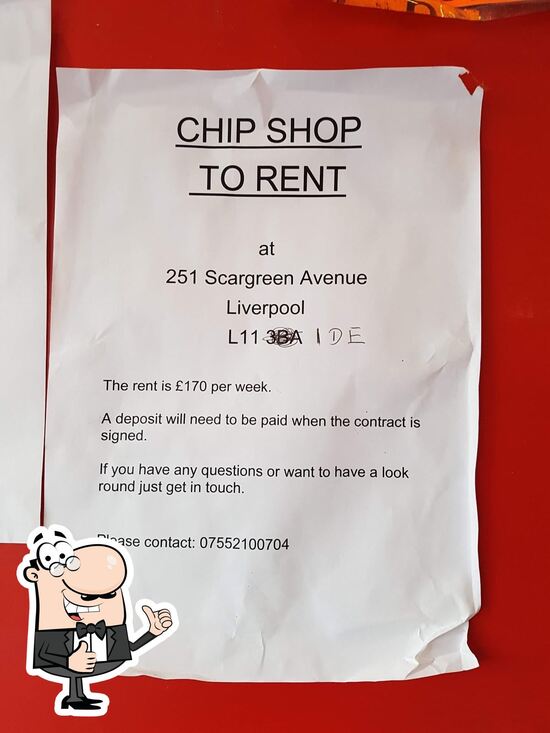 CHIP SHOP
TO RENT
at
251 Scargreen Avenue
Liverpool
L11 3BA 1DE
The rent is £170 per week.
A deposit will need to be paid when the contract is
signed.
If you have any questions or want to have a look
round just get in touch.
Please contact: 07552100704